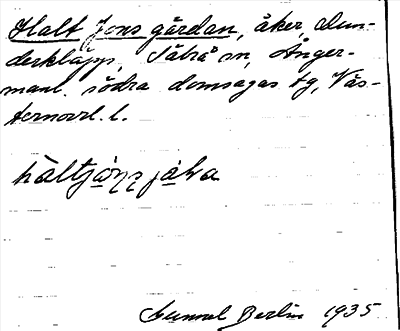 Halt Jons gärdan, åker, Dun-
derklapp, Säbrå sn, Ånger-
manl. södra domsagas tg, Väs-
ternorrl. l.
hàltjo̱ṇṣ já̱ḷa
Gunnel Berlin 1935